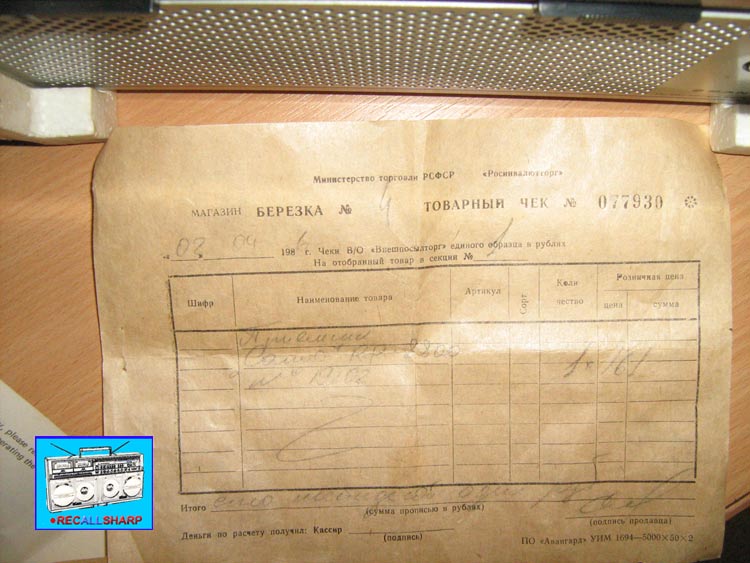 Министерство торговли РСФСР «Росинвалютторг»
МАГАЗИН БЕРЕЗКА № 4 ТОВАРНЫЙ ЧЕК № 077930
« 03 » 04 198 г. Чеки В/О «Внешпосылторг» единого образца в рублях
На отобранный товар в секции № 1
Шифр Наименование товара Артикул Сорт Коли чество Розничная цена
цена сумма
1х 161
Итого сто шестьдесят
(сумма прописью в рублях) (подпись продавца)
Деньги по расчету получил: Кассир
(подпись)
ПО «Авангард» УИМ 1694—5000×50×2
please
erating the
RECALLSHARP